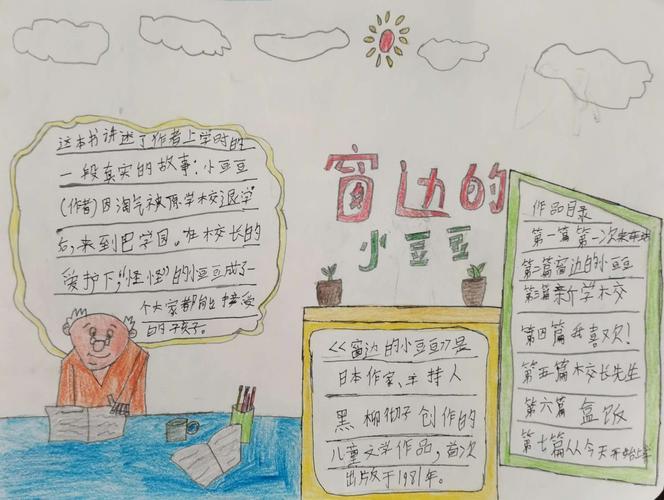 窗边的
小豆豆
这本书讲述了作者上学时的
一段真实的故事：小豆豆
(作者)因淘气被原学校退学
后，来到巴学园。在校长的
爱护下，"怪怪"的小豆豆成了一
个大家都能接受
的孩子。
《窗边的小豆豆》是
日本作家、主持人
黑柳彻子创作的
儿童文学作品，首次
出版于1981年。
作品目录
第一篇 第一次来车站
第二篇窗边的小豆豆
第三篇新学校
第四篇我喜欢！
第五篇校长先生
第六篇 盒饭
第七篇从今天开始上学